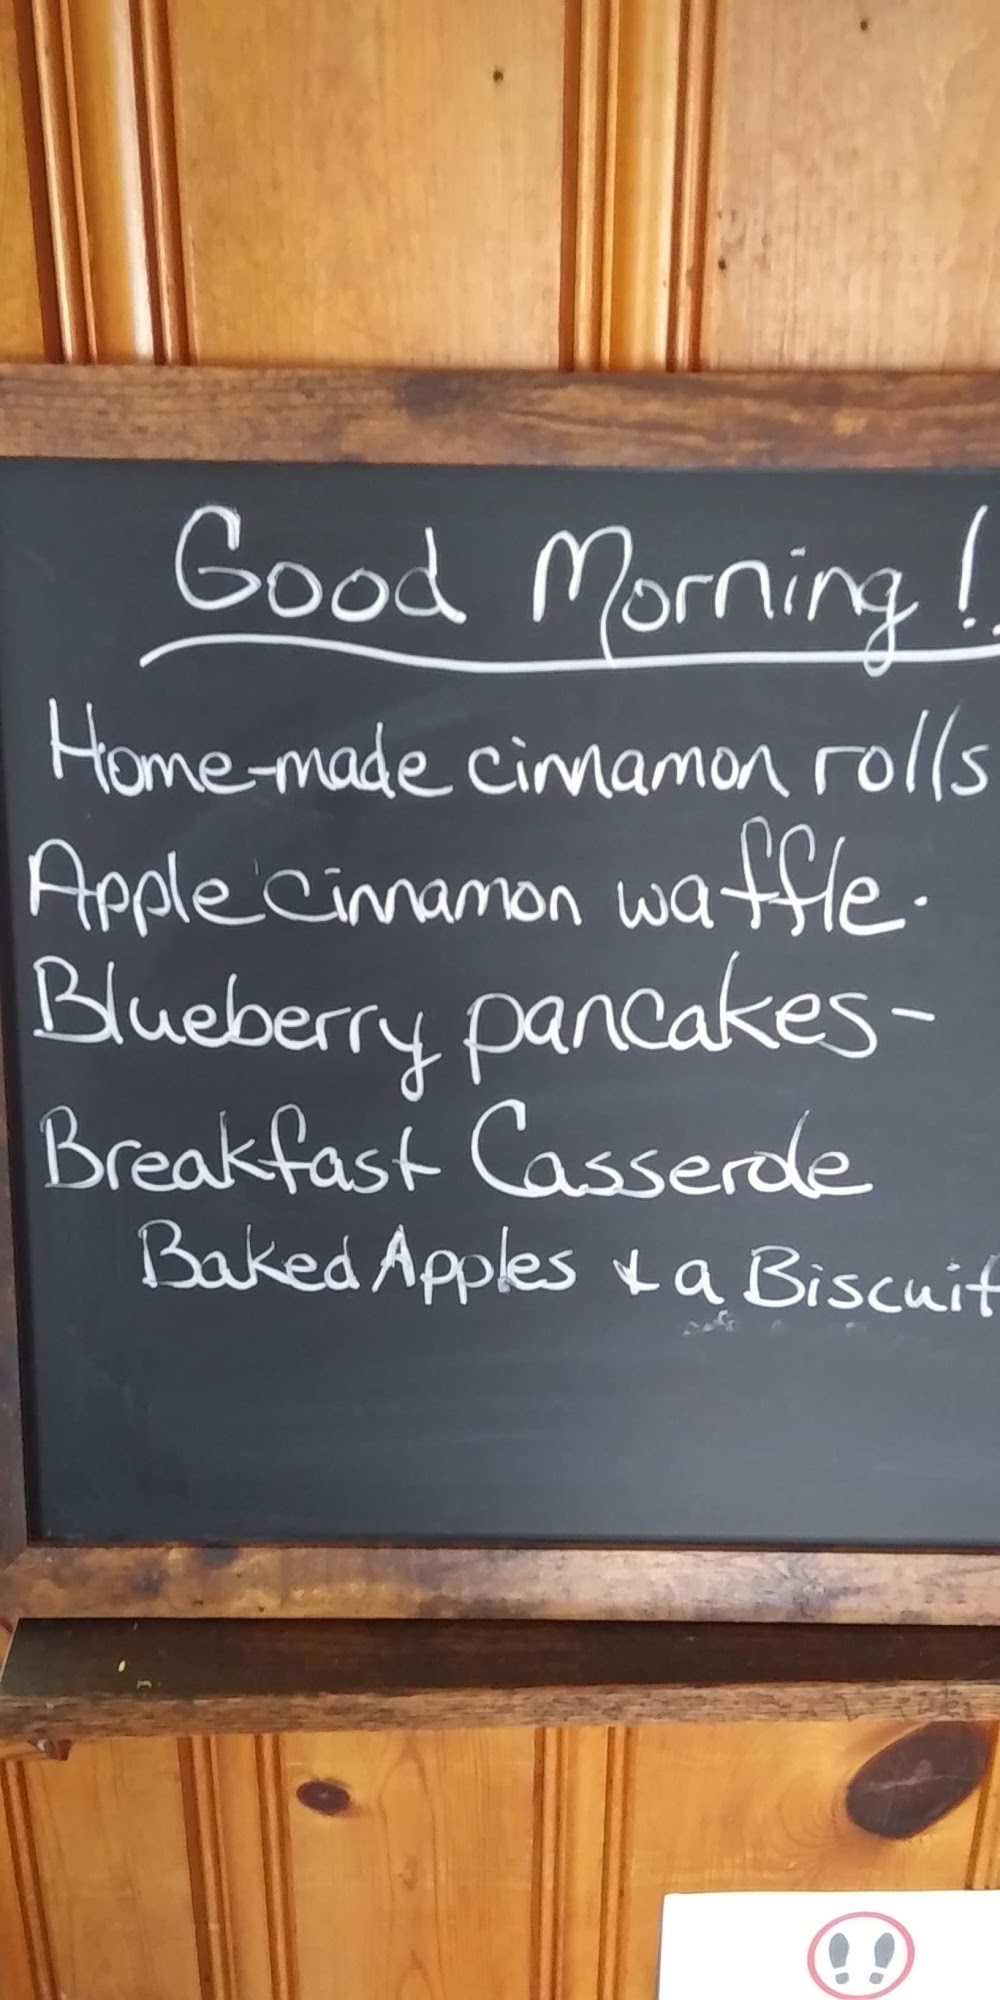 Good Morning!
Home-made cinnamon rolls
Apple cinnamon waffle.
Blueberry pancakes-
Breakfast Casserole
Baked Apples & a Biscuit